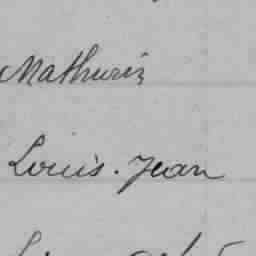 Mathurin
Louis. Jean